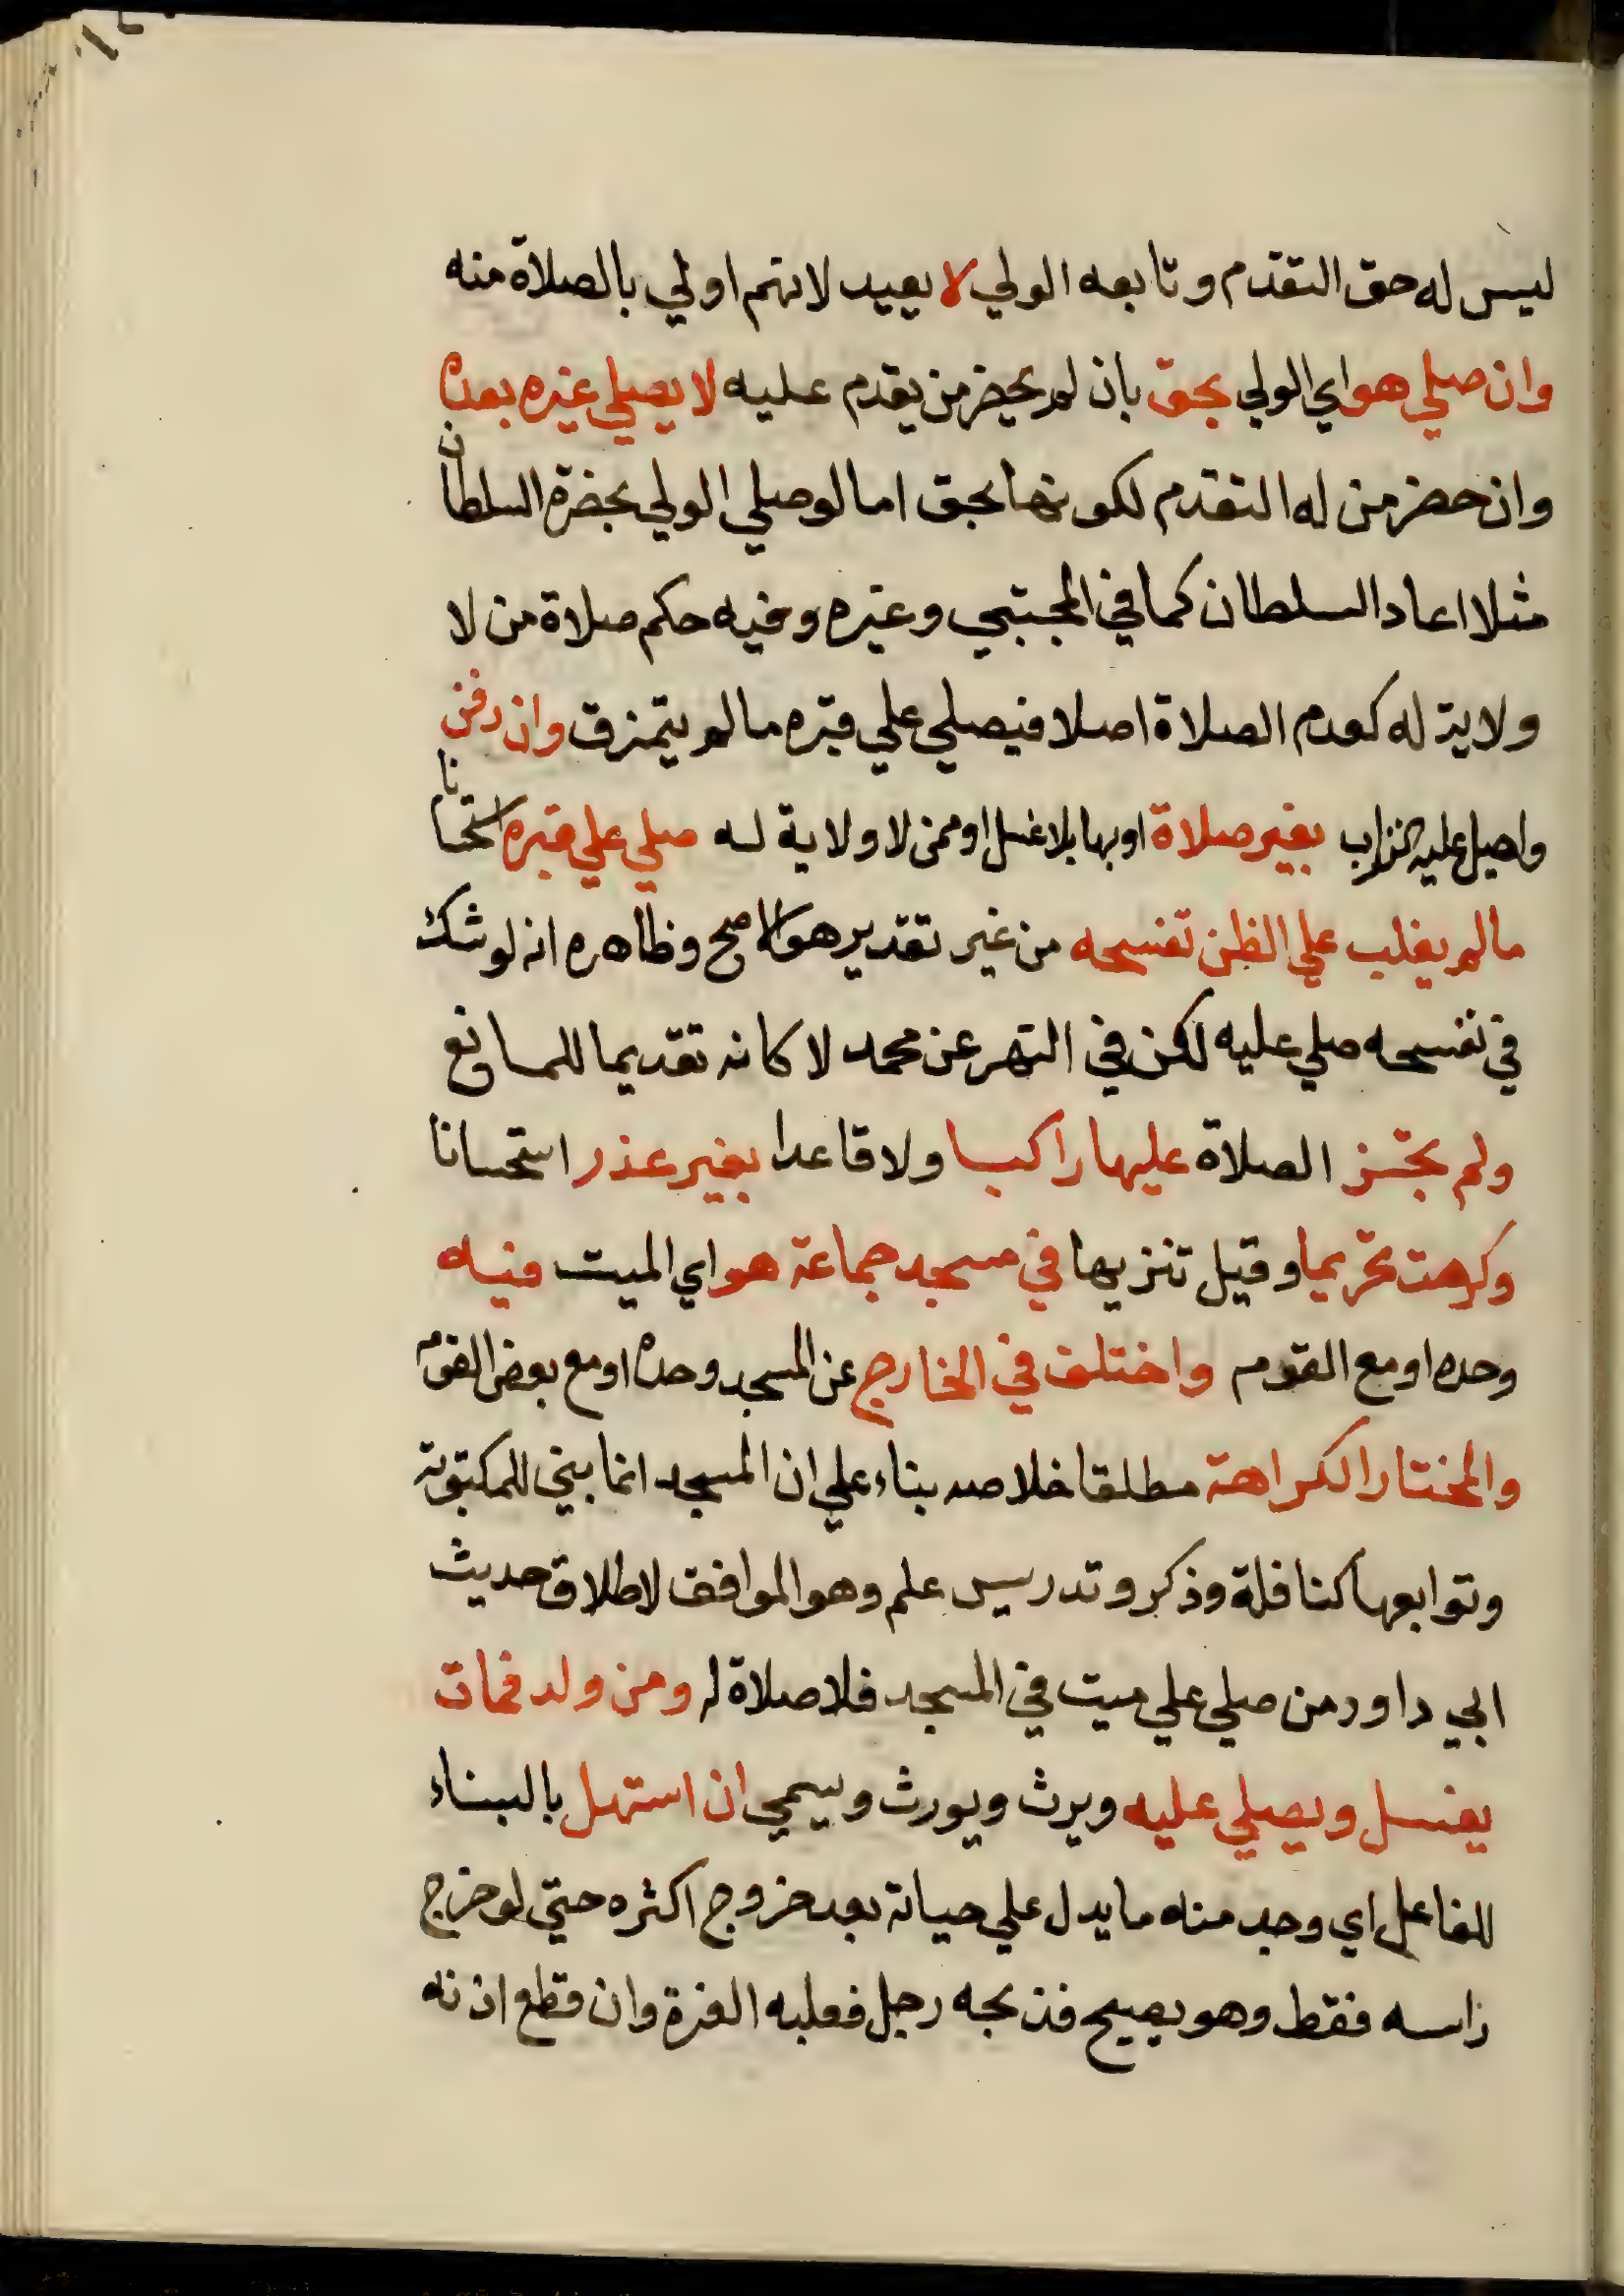 ليس له حق التقدم وتابعه الولي لا يعيد لانهم اولي بالصلاة منه
وان صلي هو اي الولي بحق بان لم يحضر من يقدم عليه لا يصلي غيره بعده
وان حضر من له التقدم لكونها بحق اما لو صلي الولي بحضرة السلطان
مثلا اعاد السلطان كما في المجتبي وغيره وفيه حكم صلاة من لا
ولاية له كعدم الصلاة اصلا فيصلي علي قبره ما لم يتمزق وان دفن
واهيل عليه التراب بغير صلاة او بها بلا غسل او ممن لا ولاية له صلي علي قبره استحسانا
ما لم يغلب علي الظن تفسحه من غير تقدير هو الاصح وظاهره انه لو شك
في تفسحه صلي عليه لكن في النهر عن محمد لا كانه تقديما للمانع
ولم تجز الصلاة عليها راكبا ولا قاعدا بغير عذر استحسانا
وكرهت تحريما وقيل تنزيها في مسجد جماعة هو اي الميت فيه
وحده او مع القوم واختلف في الخارج عن المسجد وحده او مع بعض القوم
والمختار الكراهة مطلقا خلاصه بناء علي ان المسجد انما بني للمكتوبة
وتوابعها كنافلة وذكر وتدريس علم وهو الموافق لاطلاق حديث
ابي داود من صلي علي ميت في المسجد فلا صلاة له ومن ولد فمات
يغسل ويصلي عليه ويرث ويورث ويسمي ان استهل بالبناء
للفاعل اي وجد منه ما يدل علي حياته بعد خروج اكثره حتي لو خرج
راسه فقط وهو يصيح فذبحه رجل فعليه الغرة وان قطع اذنه